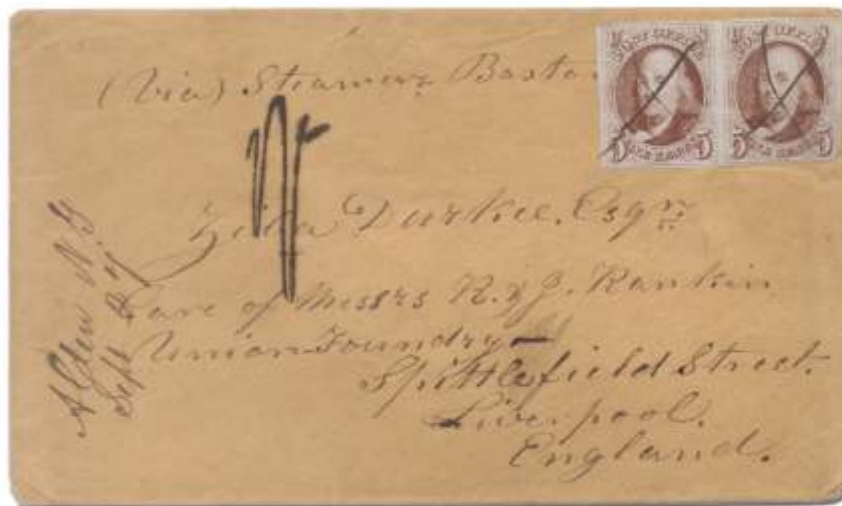 (Via) Steamer Boston
POST OFFICE
FIVE CENTS
5 5
POST OFFICE
FIVE CENTS
5 5
Durkee, Esqr
Care of Messrs R. & J. Rankin
Union Foundry
Spittlefield Street.
Liverpool.
England.
Alden N.Y
Sept 27